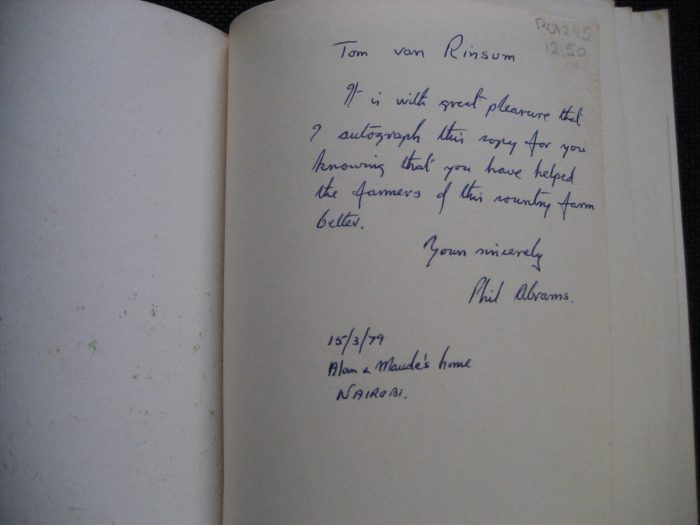 R01245
12.50
Tom van Rinsum
It is with great pleasure that
I autograph this copy for you
knowing that you have helped
the farmers of this country farm
better.
Yours sincerely
Phil Abrams.
15/3/79
Alan & Maude's home
NAIROBI.